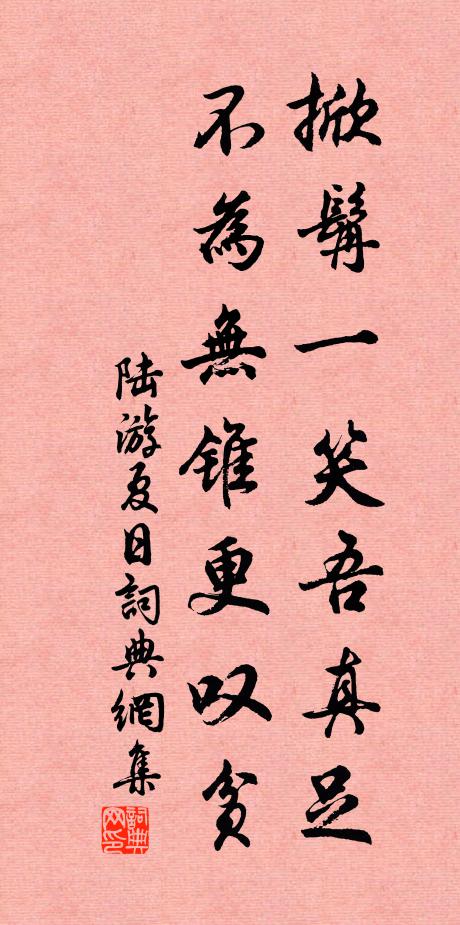 掀髯一笑吾真足
不為無錐更叹貧
陆游夏日詞典網集
詞典网印